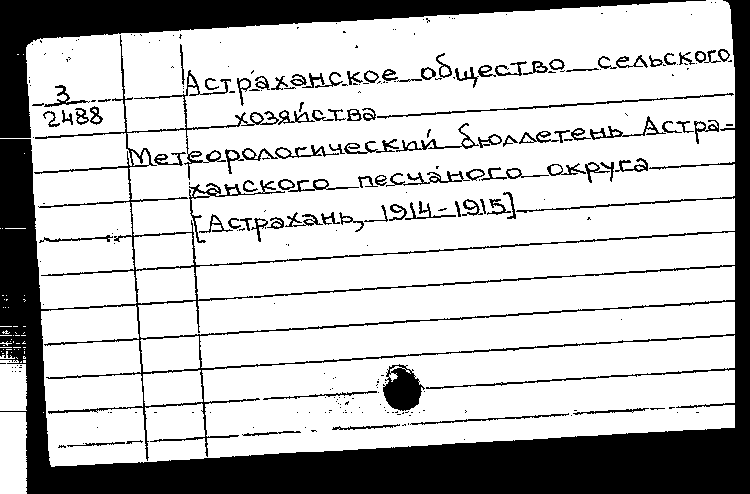 З
2488
Астраханское общество сельского
хозяйства
Метеорологический бюллетень Астра-
ханского песчаного округа
[Астрахань, 1914-1915]